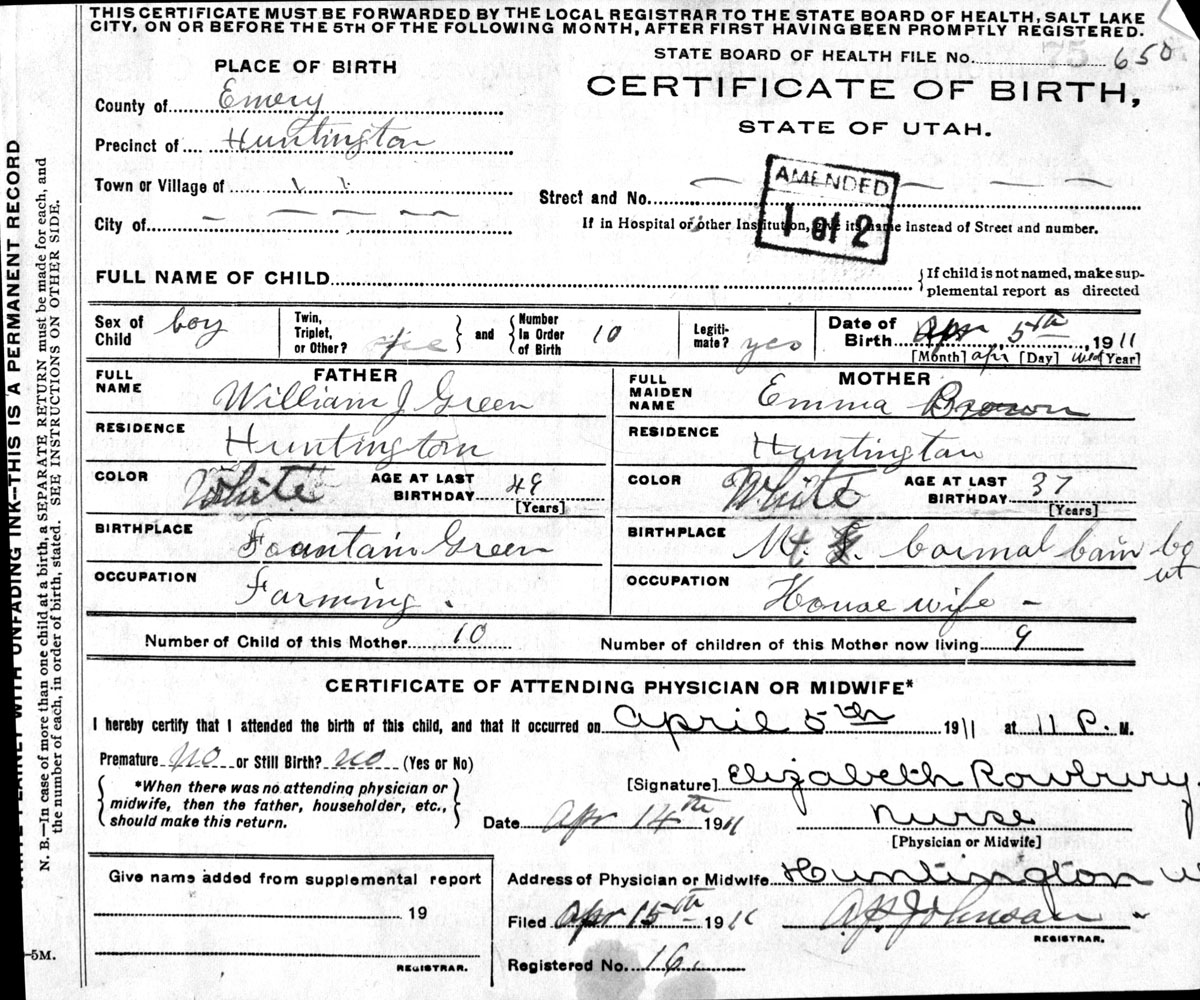 THIS CERTIFICATE MUST BE FORWARDED BY THE LOCAL REGISTRAR TO THE STATE BOARD OF HEALTH, SALT LAKE
CITY, ON OR BEFORE THE 5TH OF THE FOLLOWING MONTH, AFTER FIRST HAVING BEEN PROMPTLY REGISTERED.
STATE BOARD OF HEALTH FILE No. 650
PLACE OF BIRTH
CERTIFICATE OF BIRTH,
STATE OF UTAH.
County of Emery
Precinct of Huntington
Town or Village of
City of
AMENDED
1 of 2
Street and No.
If in Hospital or other Institution, give its name instead of Street and number.
FULL NAME OF CHILD
If child is not named, make sup-
plemental report as directed
Sex of Child boy
Twin, Triplet, or Other?
and Number In Order of Birth 10
Legiti-mate? yes
Date of Birth Apr 5th, 1911
[Month] apr [Day] wed [Year]
FATHER
FULL NAME William J Green
RESIDENCE Huntington
COLOR White AGE AT LAST BIRTHDAY 49 [Years]
BIRTHPLACE Fountain Green
OCCUPATION Farming.
MOTHER
FULL MAIDEN NAME Emma Brown
RESIDENCE Huntington
COLOR White AGE AT LAST BIRTHDAY 37 [Years]
BIRTHPLACE
OCCUPATION House wife -
Number of Child of this Mother 10 Number of children of this Mother now living 9
CERTIFICATE OF ATTENDING PHYSICIAN OR MIDWIFE*
I hereby certify that I attended the birth of this child, and that it occurred on april 5th 1911 at 11 P. M.
Premature no or Still Birth? no (Yes or No)
*When there was no attending physician or
midwife, then the father, householder, etc.,
should make this return.
[Signature] Elizabeth Rowbury
Date Apr 14th 1911 Nurse
[Physician or Midwife]
Give name added from supplemental report
19
REGISTRAR.
Address of Physician or Midwife Huntington
Filed Apr 15th 1911 A.P. Johnson
REGISTRAR.
Registered No. 16.
5M.
WRITE PLAINLY WITH UNFADING INK—THIS IS A PERMANENT RECORD
N. B.—In case of more than one child at a birth, a SEPARATE RETURN must be made for each, and
the number of each, in order of birth, stated. SEE INSTRUCTIONS ON OTHER SIDE.